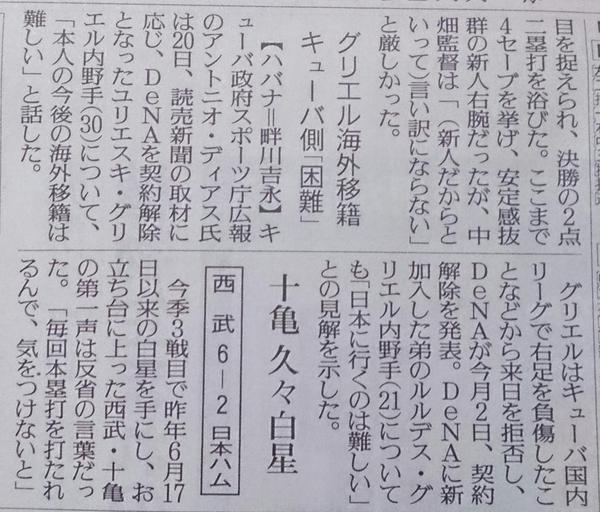 目を捉えられ、決勝の2点
二塁打を浴びた。ここまで
4セーブを挙げ、安定感抜
群の新人右腕だったが、中
畑監督は「(新人だからと
いって)言い訳にならない」
と厳しかった。
グリエル海外移籍
キューバ側「困難」
【ハバナ=畔川吉永】キ
ューバ政府スポーツ庁広報
のアントニオ・ディアス氏
は20日、読売新聞の取材に
応じ、DeNAを契約解除
となったユリエスキ・グリ
エル内野手(30)について、
「本人の今後の海外移籍は
難しい」と話した。
グリエルはキューバ国内
リーグで右足を負傷したこ
となどから来日を拒否し、
DeNAが今月2日、契約
解除を発表。DeNAに新
加入した弟のルルデス・グ
リエル内野手(21)について
も「日本に行くのは難しい」
との見解を示した。
十亀 久々白星
西武6―2日本ハム
今季3戦目で昨年6月17
日以来の白星を手にし、お
立ち台に上った西武・十亀
の第一声は反省の言葉だっ
た。「毎回本塁打を打たれ
るんで、気をつけないと」